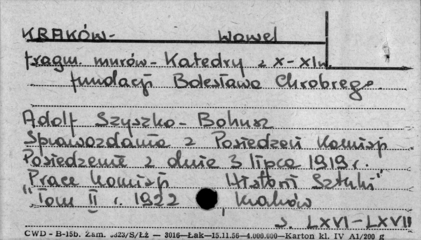 KRAKÓW- Wawel
fragm. murów- Katedry z X-XIw.
fundacji Bolesława Chrobrego.
Adolf Szyszko- Bohusz
Sprawozdania z Posiedzeń Komisji
Posiedzenie z dnia 3 lipca 1919 r.
Prace Komisji Historii Sztuki
"Tom II r. 1922, Kraków
s. LXVI-LXVII
CWD - B-15b. Zam. S/Łż — 3016—Łak—15.11.56—4.000.000—Karton kl. IV A1/200 g